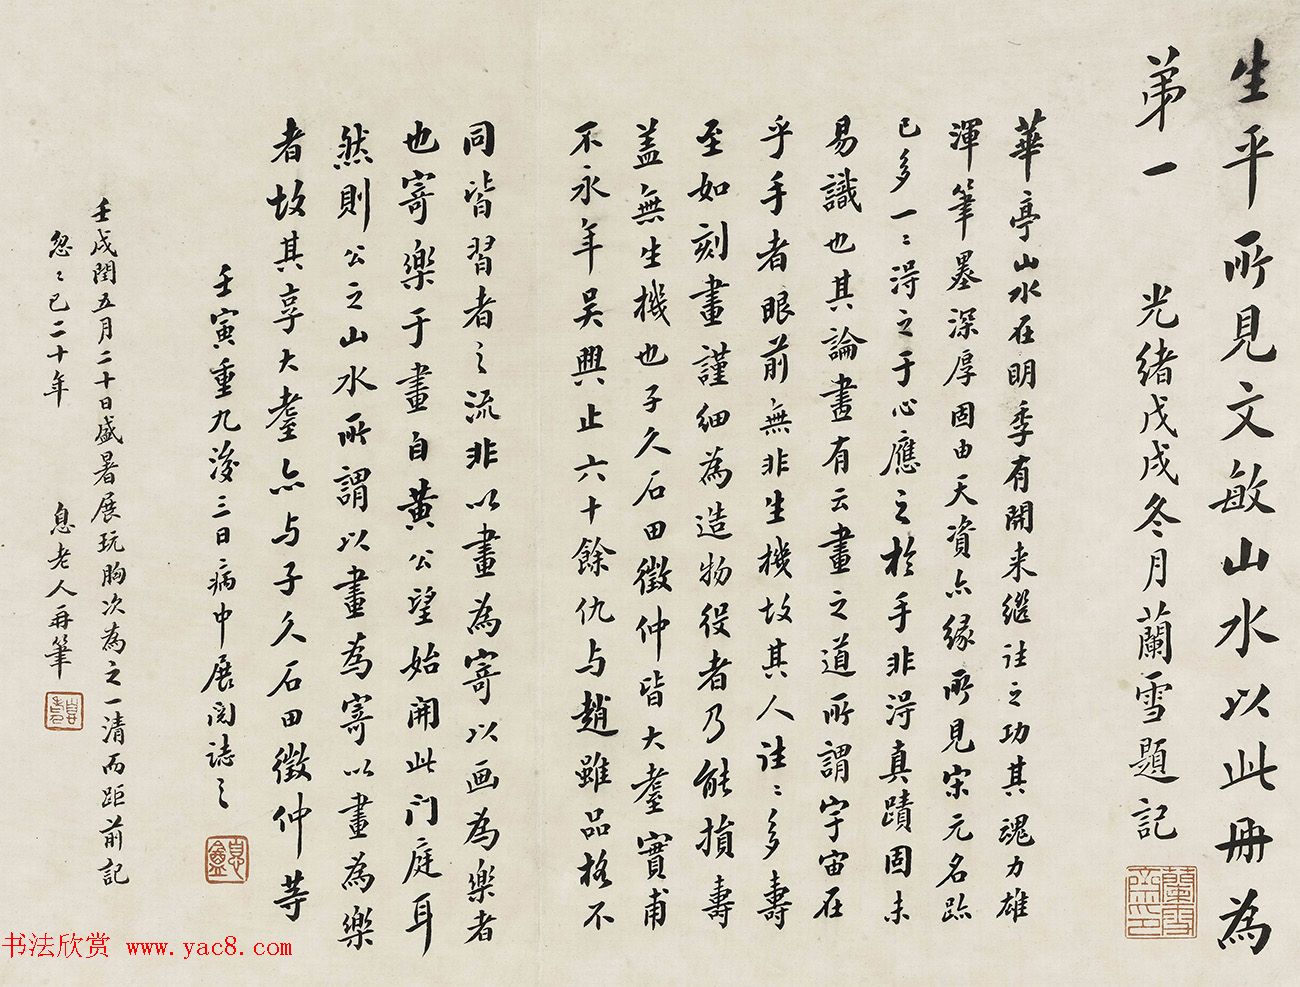 生平所見文敏山水以此冊為
弟一
光緒戊戌冬月蘭雪題記
華亭山水在明季有開来繼往之功其魂力雄
渾筆墨深厚固由天資亦緣所見宋元名跡
已多一〻淂之于心應之於手非淂真蹟固未
易識也其論畫有云畫之道所謂宇宙在
乎手者眼前無非生機故其人往〻多壽
至如刻畫謹細為造物役者乃能損壽
盖無生機也子久石田徵仲皆大耋實甫
不永年吴興止六十餘仇与趙雖品格不
同皆習者之流非以畫為寄以画為樂者
也寄樂于畫自黄公望始開此门庭耳
然則公之山水所謂以畫為寄以畫為樂
者故其享大耋亦与子久石田徵仲等
壬寅重九後三日病中展閱誌之
壬戌閏五月二十日盛暑展玩胸次為之一清而距前記
忽〻已二十年
息老人再筆
书法欣赏 www.yac8.com